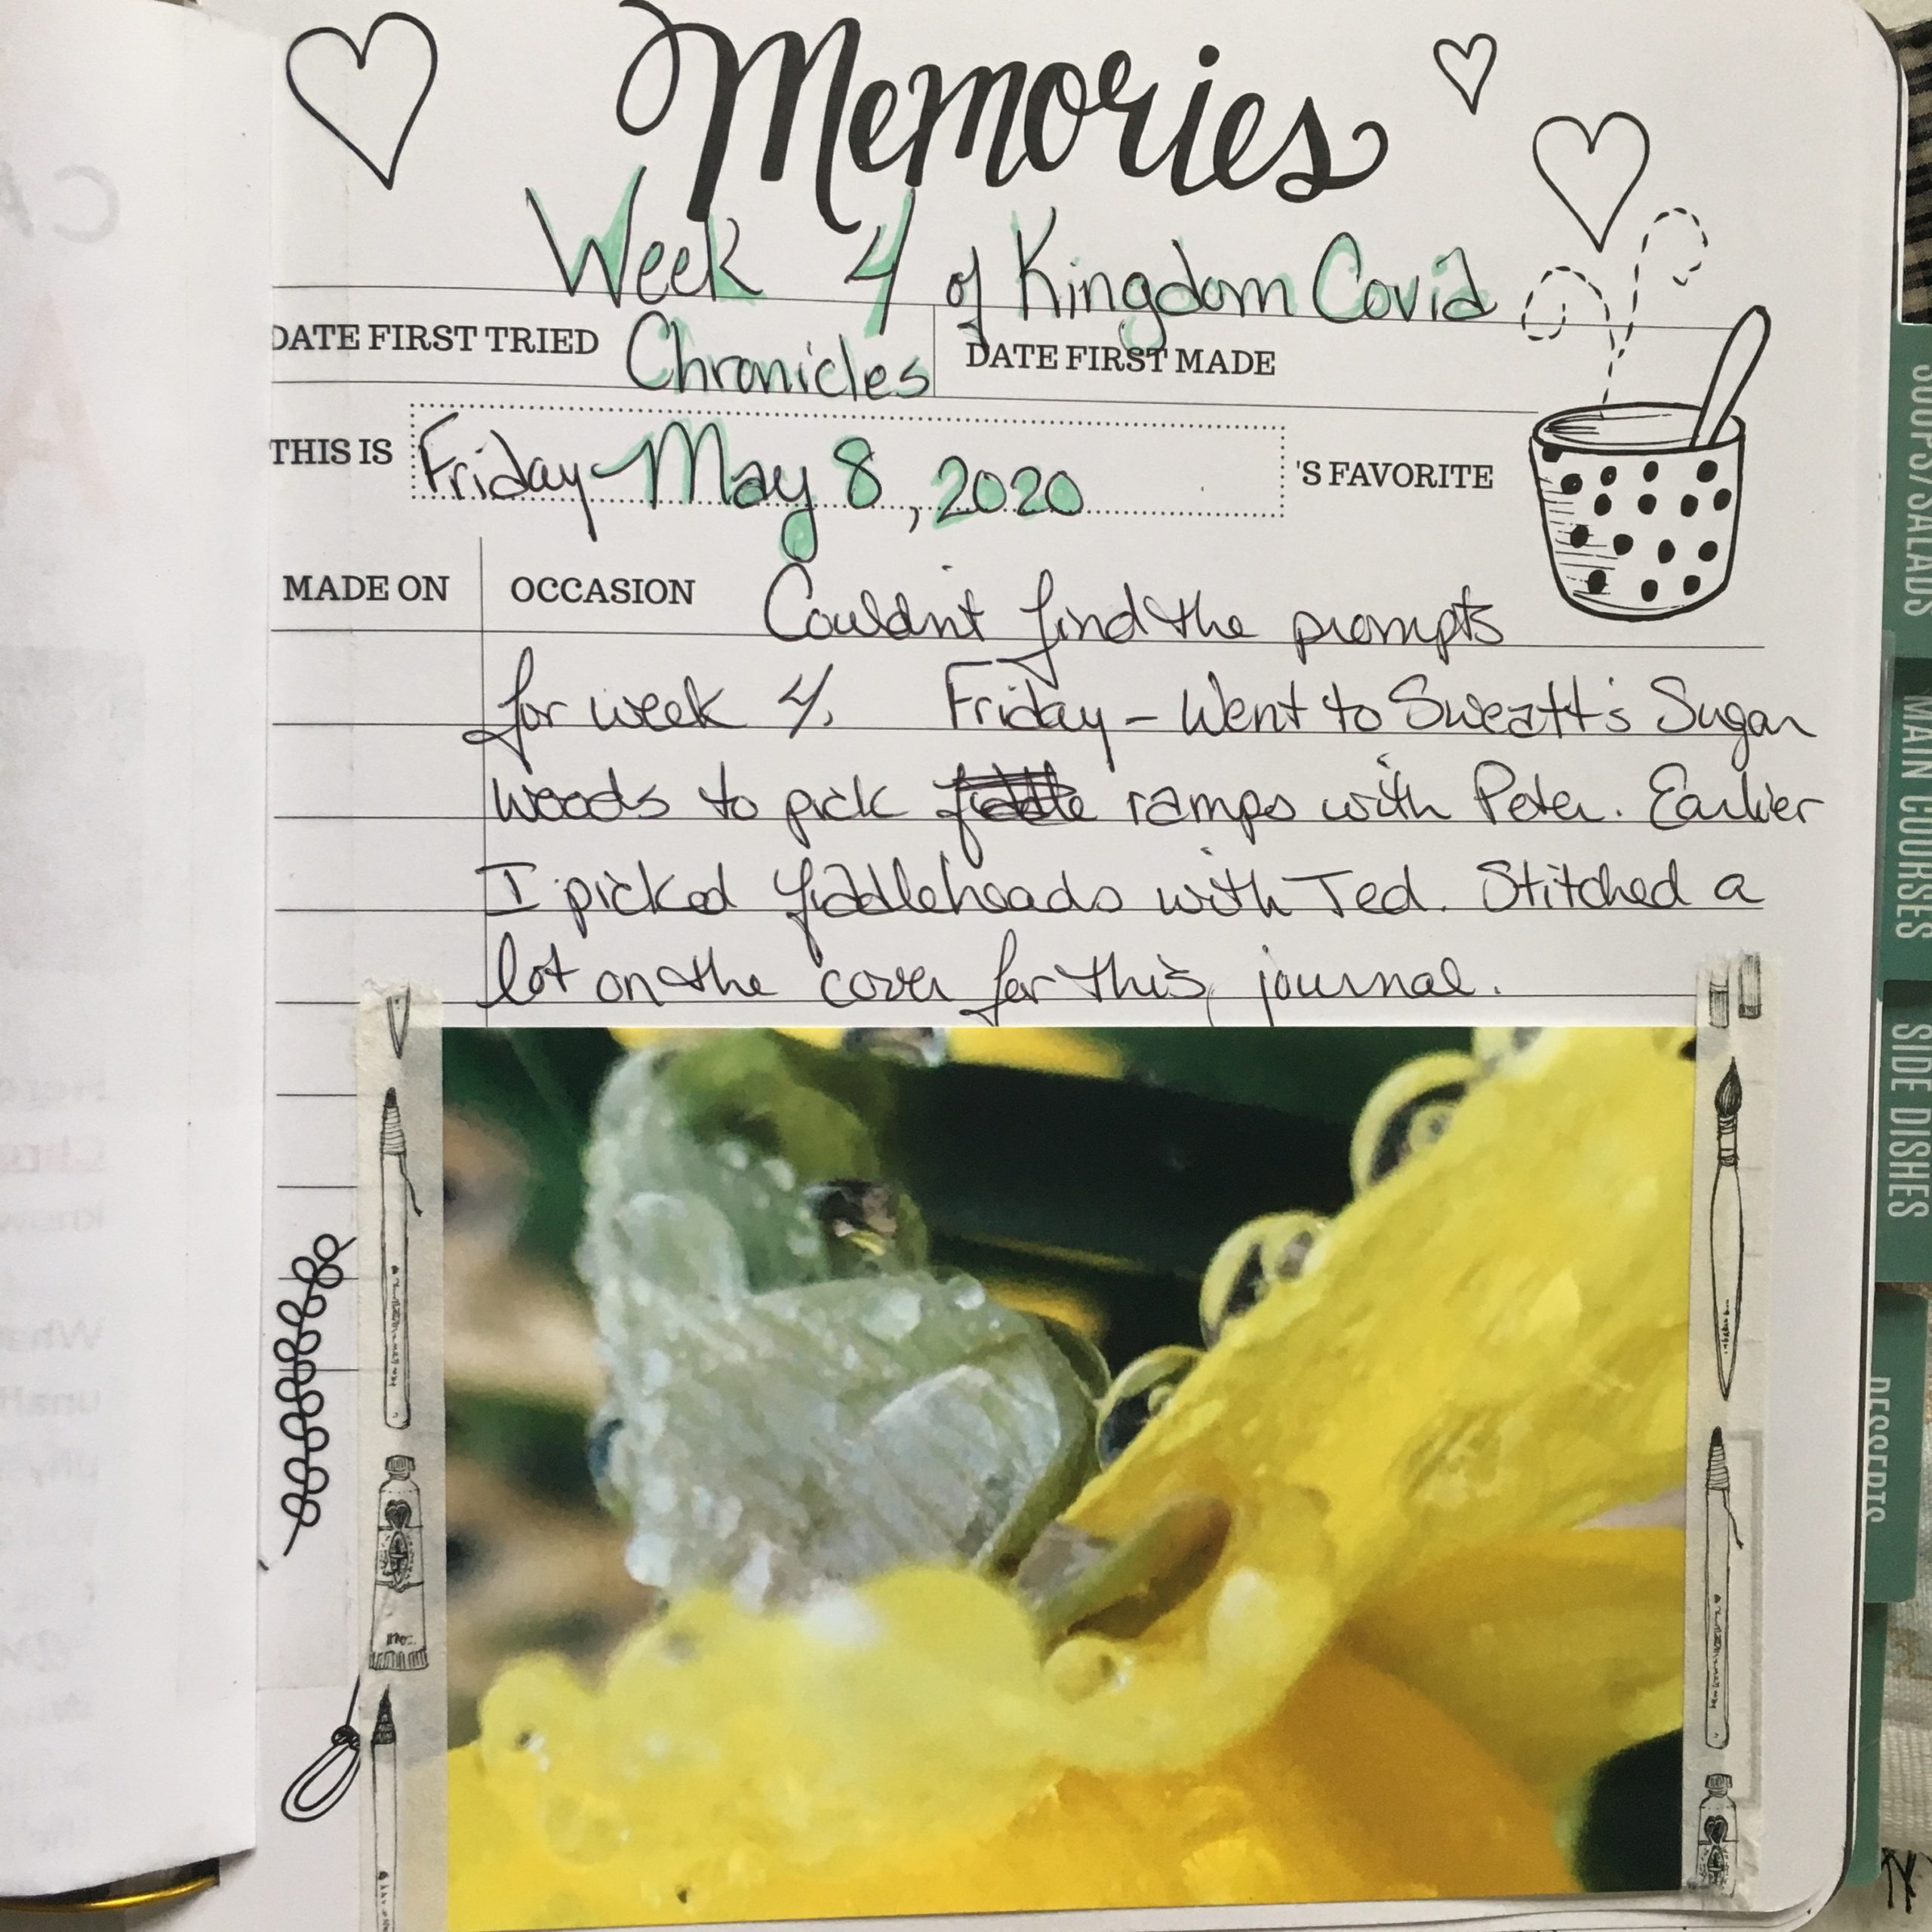 Memories
Week 4 of Kingdom Covid
DATE FIRST TRIED Chronicles DATE FIRST MADE
THIS IS Friday - May 8, 2020 'S FAVORITE
MADE ON OCCASION Couldn't find the prompts
for week 4. Friday - Went to Sweatt's Sugar
woods to pick fiddle ramps with Peter. Earlier
I picked fiddleheads with Ted. Stitched a
lot on the cover for this journal.
SOUPS/SALADS
MAIN COURSES
SIDE DISHES
DESSERTS